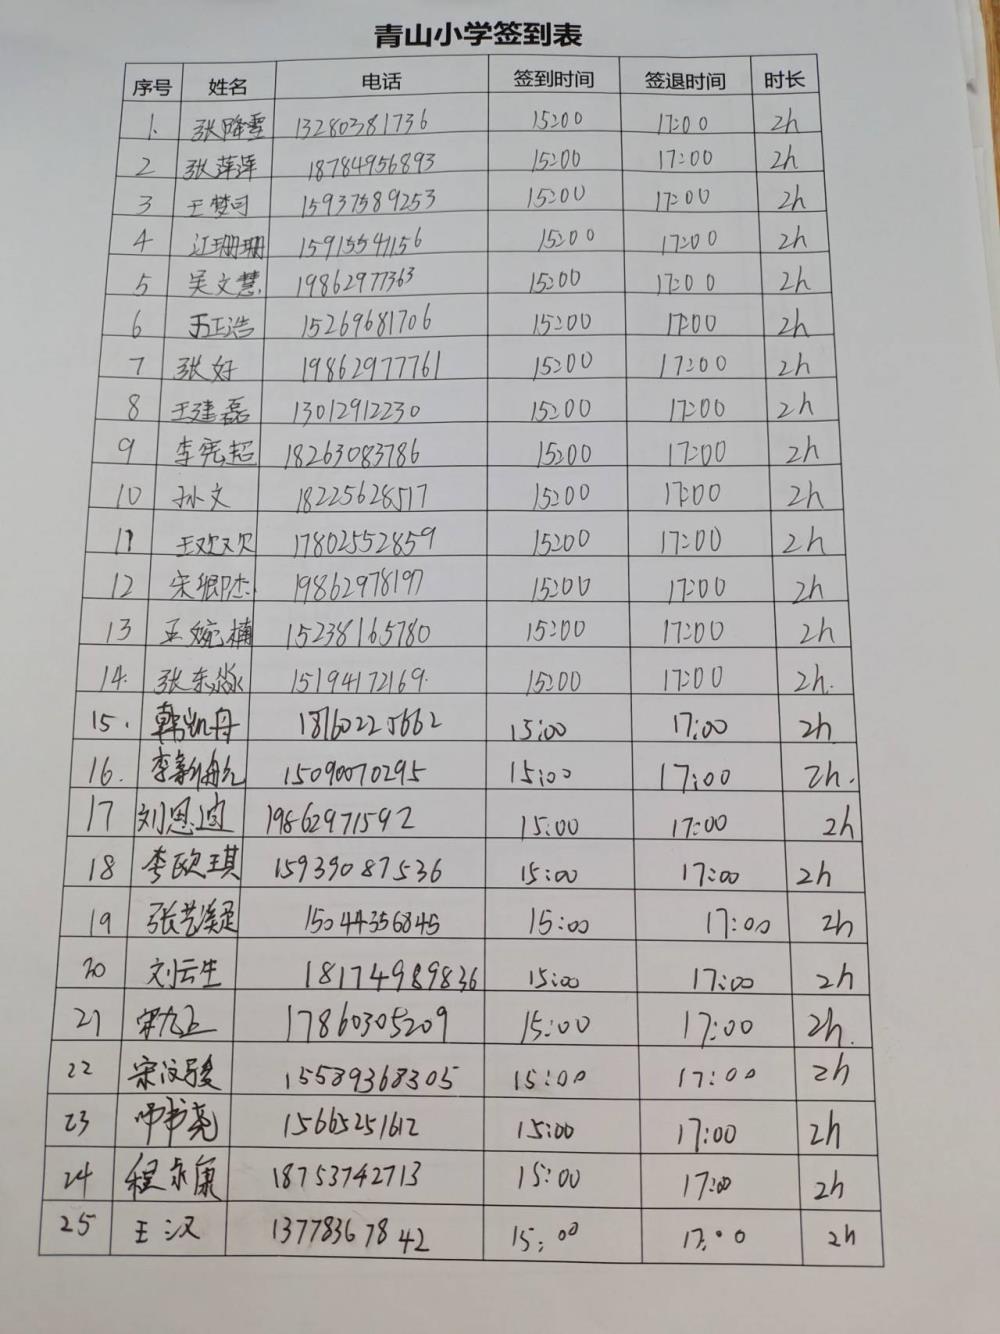 青山小学签到表
序号 姓名 电话 签到时间 签退时间 时长
1. 张降雪 13280381736 15:00 17:00 2h
2 张萍萍 18784956893 15:00 17:00 2h
3 王梦可 15937589253 15:00 17:00 2h
4 江珊珊 15915541156 15:00 17:00 2h
5 吴文慧 19862977363 15:00 17:00 2h
6 王浩 15269681706 15:00 17:00 2h
7 张好 19862977761 15:00 17:00 2h
8 王建磊 13012912230 15:00 17:00 2h
9 李宪超 18263083786 15:00 17:00 2h
10 孙文 18225628517 15:00 17:00 2h
11 王欢欢 17802552859 15:00 17:00 2h
12 宋 杰 19862978197 15:00 17:00 2h
13 王婉楠 15238165780 15:00 17:00 2h
14. 张东淼 15194172169. 15:00 17:00 2h.
15. 韩凯丹 15:00 17:00 2h
16. 李新航 15090070295 15:00 17:00 2h.
17 刘思 19862971592 15:00 17:00 2h
18 李欧琪 15939087536 15:00 17:00 2h
19 张艺凝 15044356845 15:00 17:00 2h
20 刘云生 18174989836 15:00 17:00 2h
21 宋九 17860305209 15:00 17:00 2h.
22 宋汶骏 15589368305 15:00 17:00 2h
23 书尧 15665251612 15:00 17:00 2h
24 程永康 18753742713 15:00 17:00 2h
25 王汉 13778367842 15:00 17:00 2h